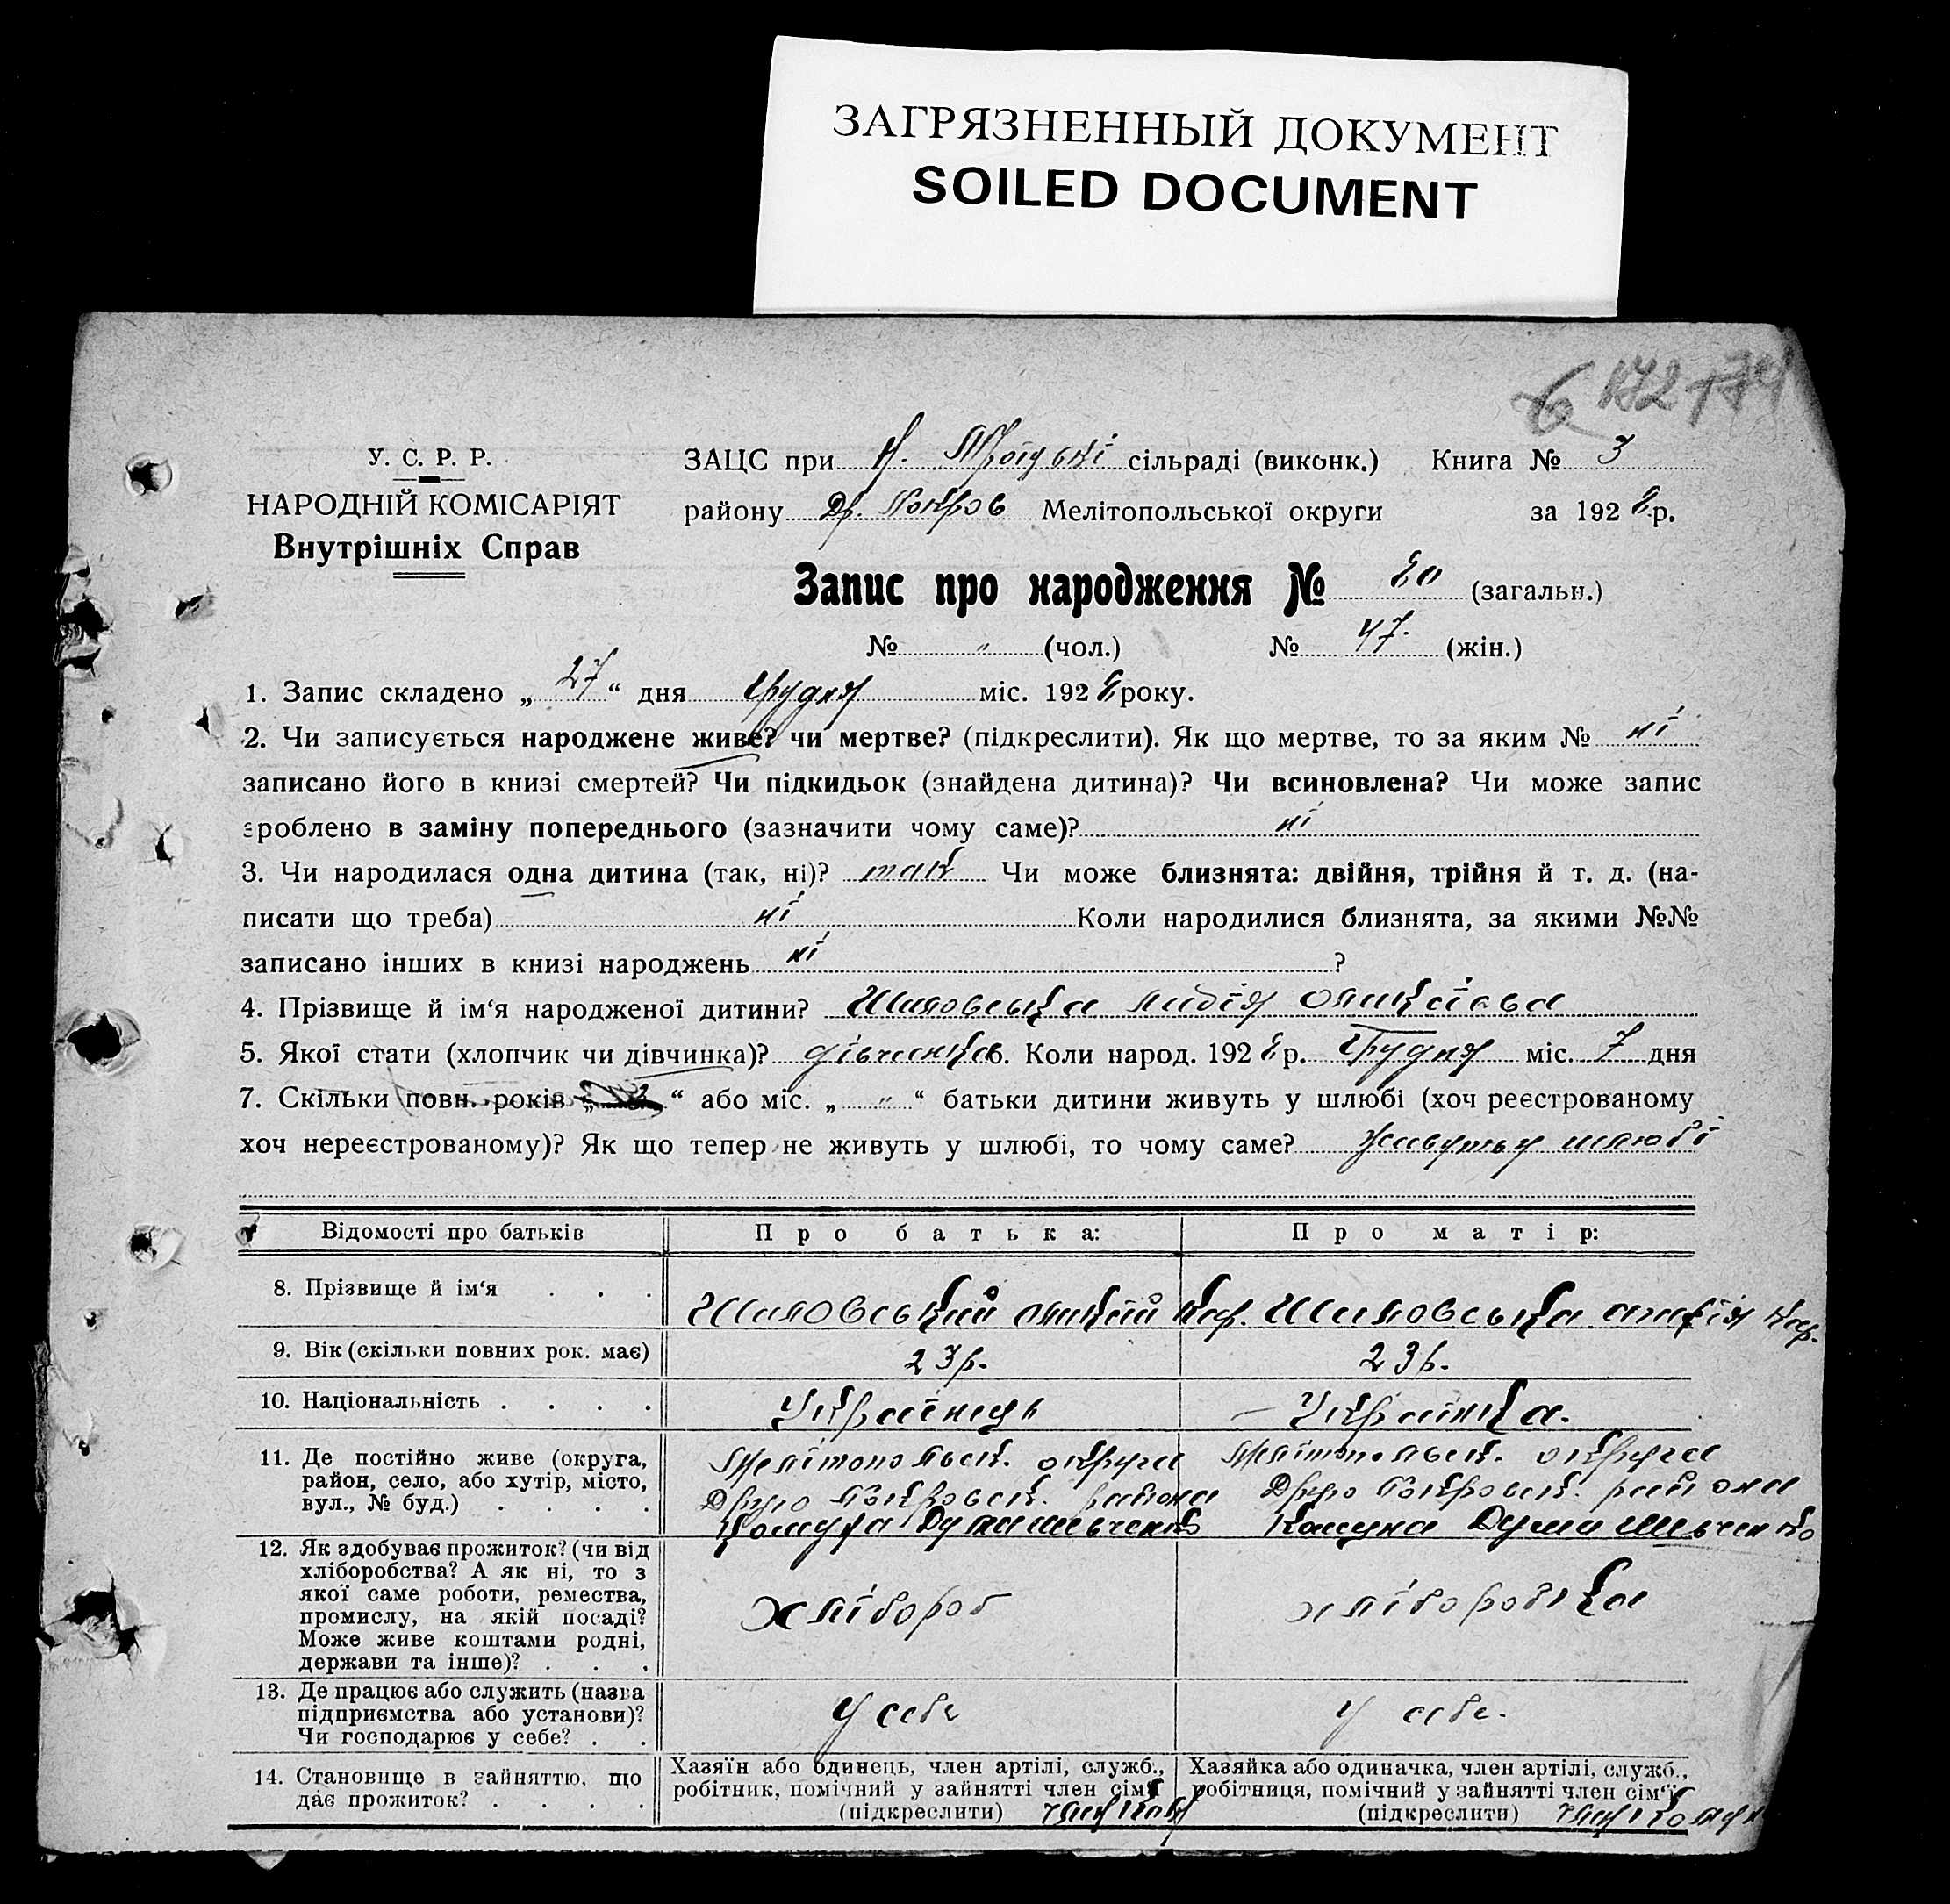 ЗАГРЯЗНЕННЫЙ ДОКУМЕНТ
SOILED DOCUMENT
У. С. Р. Р.
НАРОДНІЙ КОМІСАРІЯТ
Внутрішніх Справ
ЗАЦС при Н. сільраді (виконк.) Книга № 3
району Др. Покров Мелітопольської округи за 1928 р.
Запис про народження № 80 (загальн.)
№ „ (чол.) № 47. (жін.)
1. Запис складено „ 27 “ дня Грудня міс. 1928 року.
2. Чи записується народжене живе? чи мертве? (підкреслити). Як що мертве, то за яким № ні
записано його в книзі смертей? Чи підкидьок (знайдена дитина)? Чи всиновлена? Чи може запис
зроблено в заміну попереднього (зазначити чому саме)? ні
3. Чи народилася одна дитина (так, ні)? так Чи може близнята: двійня, трійня й т. д. (на-
писати що треба) ні Коли народилися близнята, за якими №№
записано інших в книзі народжень ні ?
4. Прізвище й ім‘я народженої дитини? Шиловська Лидія
5. Якої стати (хлопчик чи дівчинка)? дівчинка 6. Коли народ. 1928 р. Грудня міс. 7 дня
7. Скільки повн. років „ “ або міс. „ „ “ батьки дитини живуть у шлюбі (хоч реєстрованому
хоч нереєстрованому)? Як що тепер не живуть у шлюбі, то чому саме? живуть у шлюбі
Відомості про батьків Про батька: Про матір:
8. Прізвище й ім‘я . . . Шиловський Кар. Шиловська Кар.
9. Вік (скільки повних рок. має) 23 р. 23 р.
10. Національність . . . . Українець Українка.
11. Де постійно живе (округа,
район, село, або хутір, місто,
вул., № буд.) . . . .
Мелітопольск. округи Мелітопольск. округи
Друго Покровск. района Друго Покровск. района
Комуна Дума Шевченко Комуна Дума Шевченко
12. Як здобуває прожиток? (чи від
хліборобства? А як ні, то з
якої саме роботи, ремества,
промислу, на якій посаді?
Може живе коштами родні,
держави та інше)? . . .
хлібороб хліборобка
13. Де працює або служить (назва
підприємства або установи)?
Чи господарює у себе? . .
У себе У себе.
14. Становище в зайняттю, що
дає прожиток? . . . .
Хазяїн або одинець, член артілі, служб.,
робітник, помічний у зайнятті член сім‘ї
(підкреслити) член
Хазяйка або одиначка, член артілі, служб.,
робітниця, помічний у зайнятті член сім‘ї
(підкреслити) член